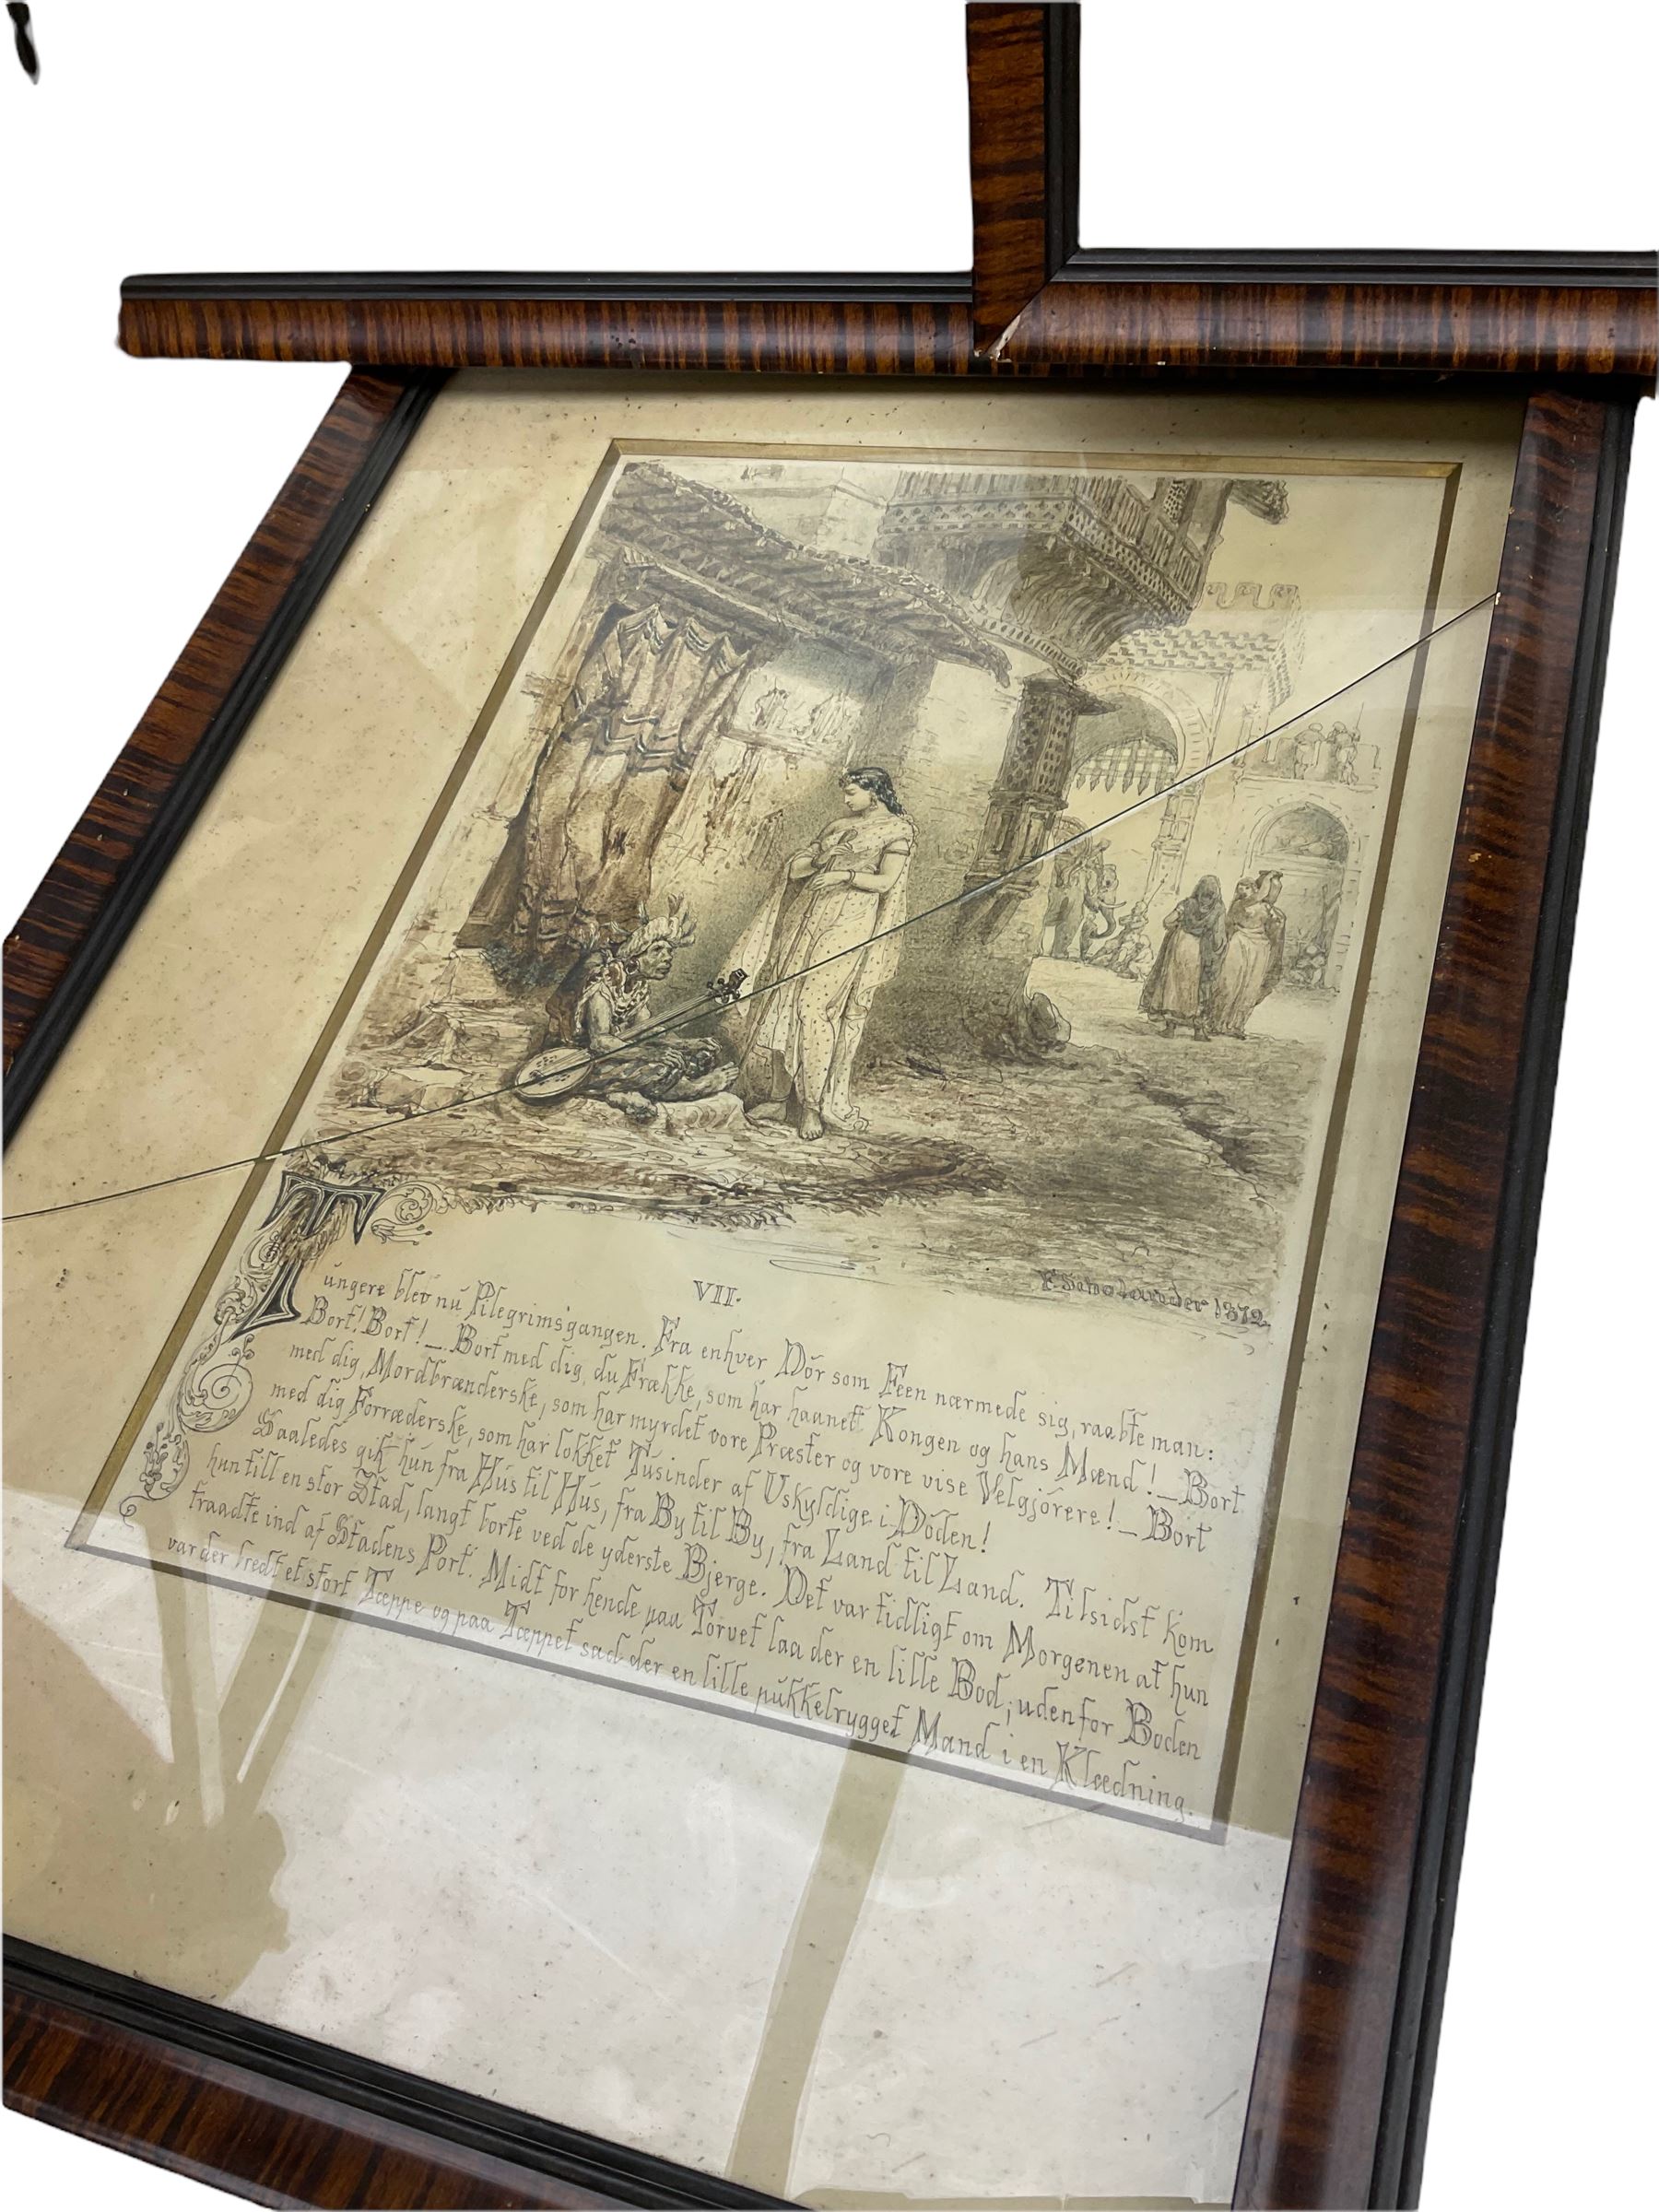 VII.
F. Scholander 1872.
Tungere blev nu Pilegrimsgangen. Fra enhver Dör som Feen nærmede sig, raabte man:
Bort! Bort! _ Bort med dig, du Frække, som har haanett Kongen og hans Mænd! _ Bort
med dig, Mordbrænderske, som har myrdet vore Præster og vore vise Velgjörere! _ Bort
med dig Forræderske, som har lokket Tusinder af Uskyldige i Döden!
Saaledes gik hun fra Hus til Hus, fra By til By, fra Land til Land. Tilsidst kom
hun till en stor Stad, langt borte ved de yderste Bjerge. Det var tidligt om Morgenen at hun
traadte ind af Stadens Port. Midt for hende paa Torvet laa der en lille Bod; udenfor Boden
var der bredt et stort Tæppe og paa Tæppet sad der en lille pukkelrygget Mand i en Klædning.